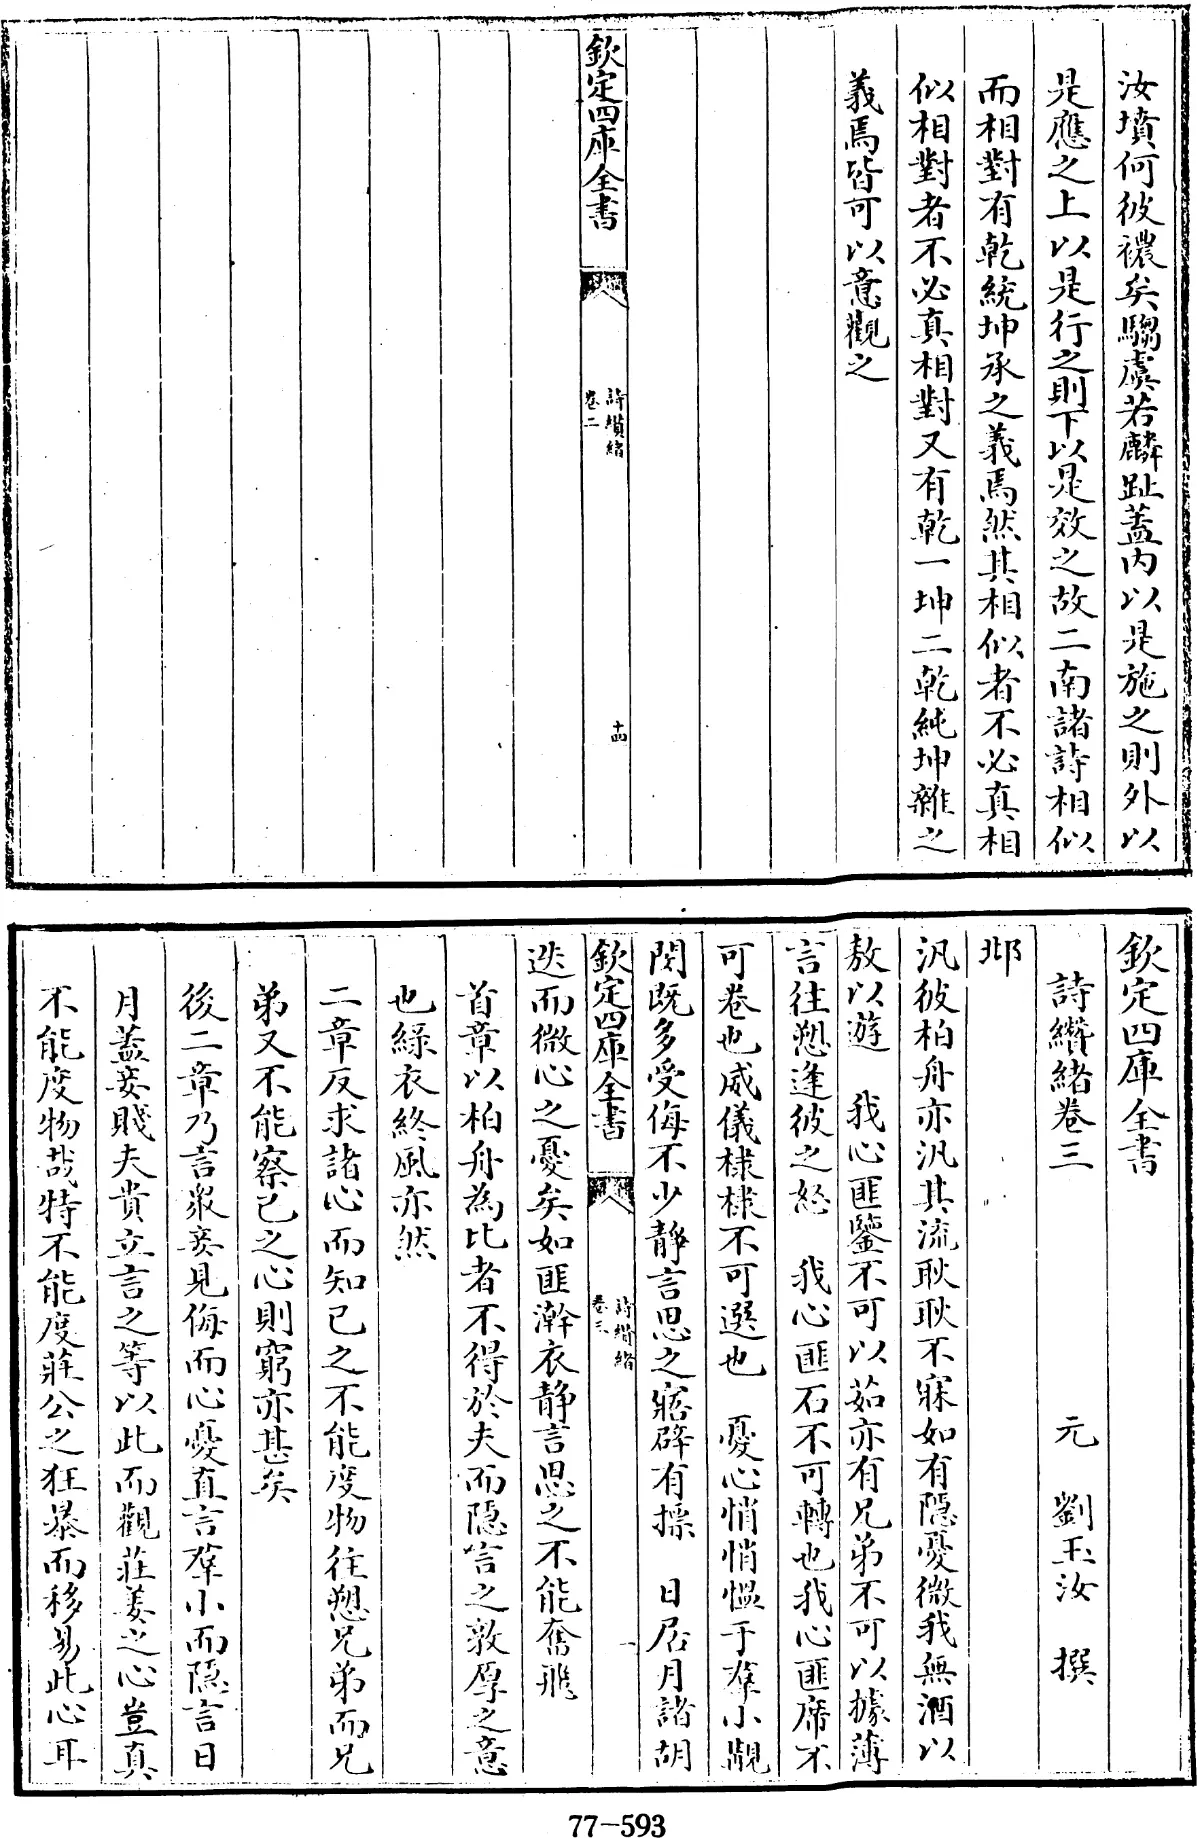 汝墳何彼襛矣騶虞若麟趾蓋内以是施之則外以
是應之上以是行之則下以是效之故二南諸詩相似
而相對有乾統坤承之義焉然其相似者不必真相
似相對者不必真相對又有乾一坤二乾純坤雜之
義焉皆可以意觀之
欽定四庫全書
詩纘緒
卷二
十四
欽定四庫全書
詩纘緒卷三
元 劉玉汝 撰
邶
汎彼柏舟亦汎其流耿耿不寐如有隱憂微我無酒以
敖以遊 我心匪鑒不可以茹亦有兄弟不可以據薄
言往愬逢彼之怒 我心匪石不可轉也我心匪席不
可卷也威儀棣棣不可選也 憂心悄悄愠于羣小覯
閔既多受侮不少靜言思之寤辟有摽 日居月諸胡
欽定四庫全書
詩纘緒
卷三
一
迭而微心之憂矣如匪澣衣静言思之不能奮飛
首章以柏舟為比者不得於夫而隱言之敦厚之意
也緑衣終風亦然
二章反求諸心而知已之不能度物往愬兄弟而兄
弟又不能察己之心則窮亦甚矣
後二章乃言衆妾見侮而心憂直言羣小而隱言日
月蓋妾賤夫貴立言之等以此而觀莊姜之心豈真
不能度物哉特不能度莊公之狂暴而移易此心耳
77-593